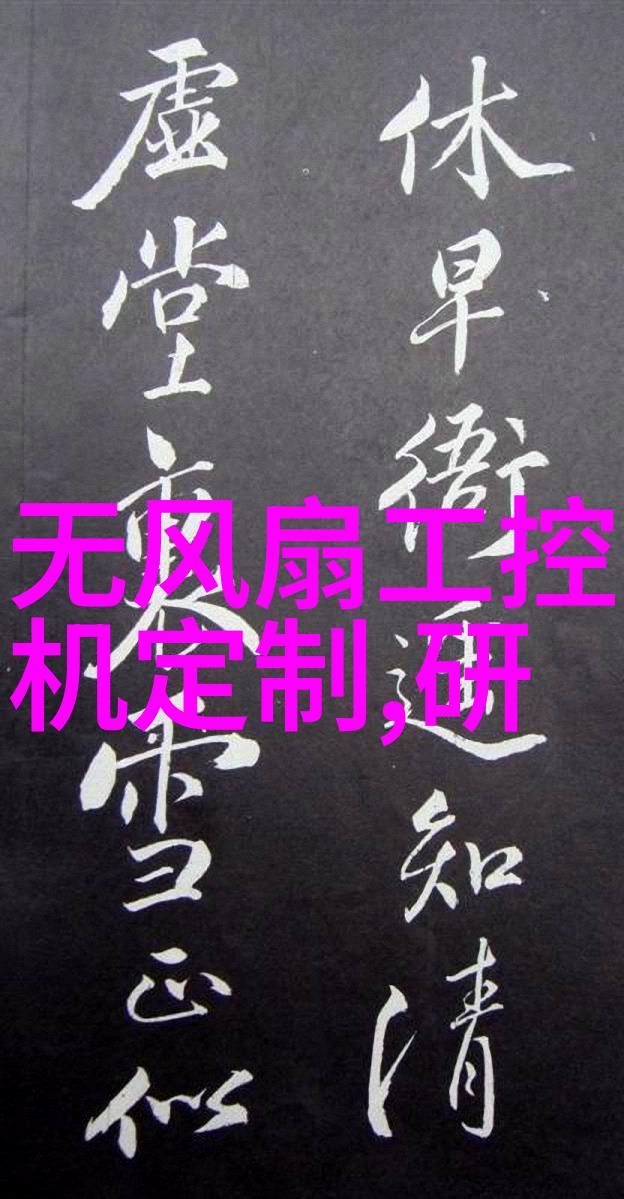 休早衙遥知清
虚堂裏雪正似
无风扇工控
机定制,研